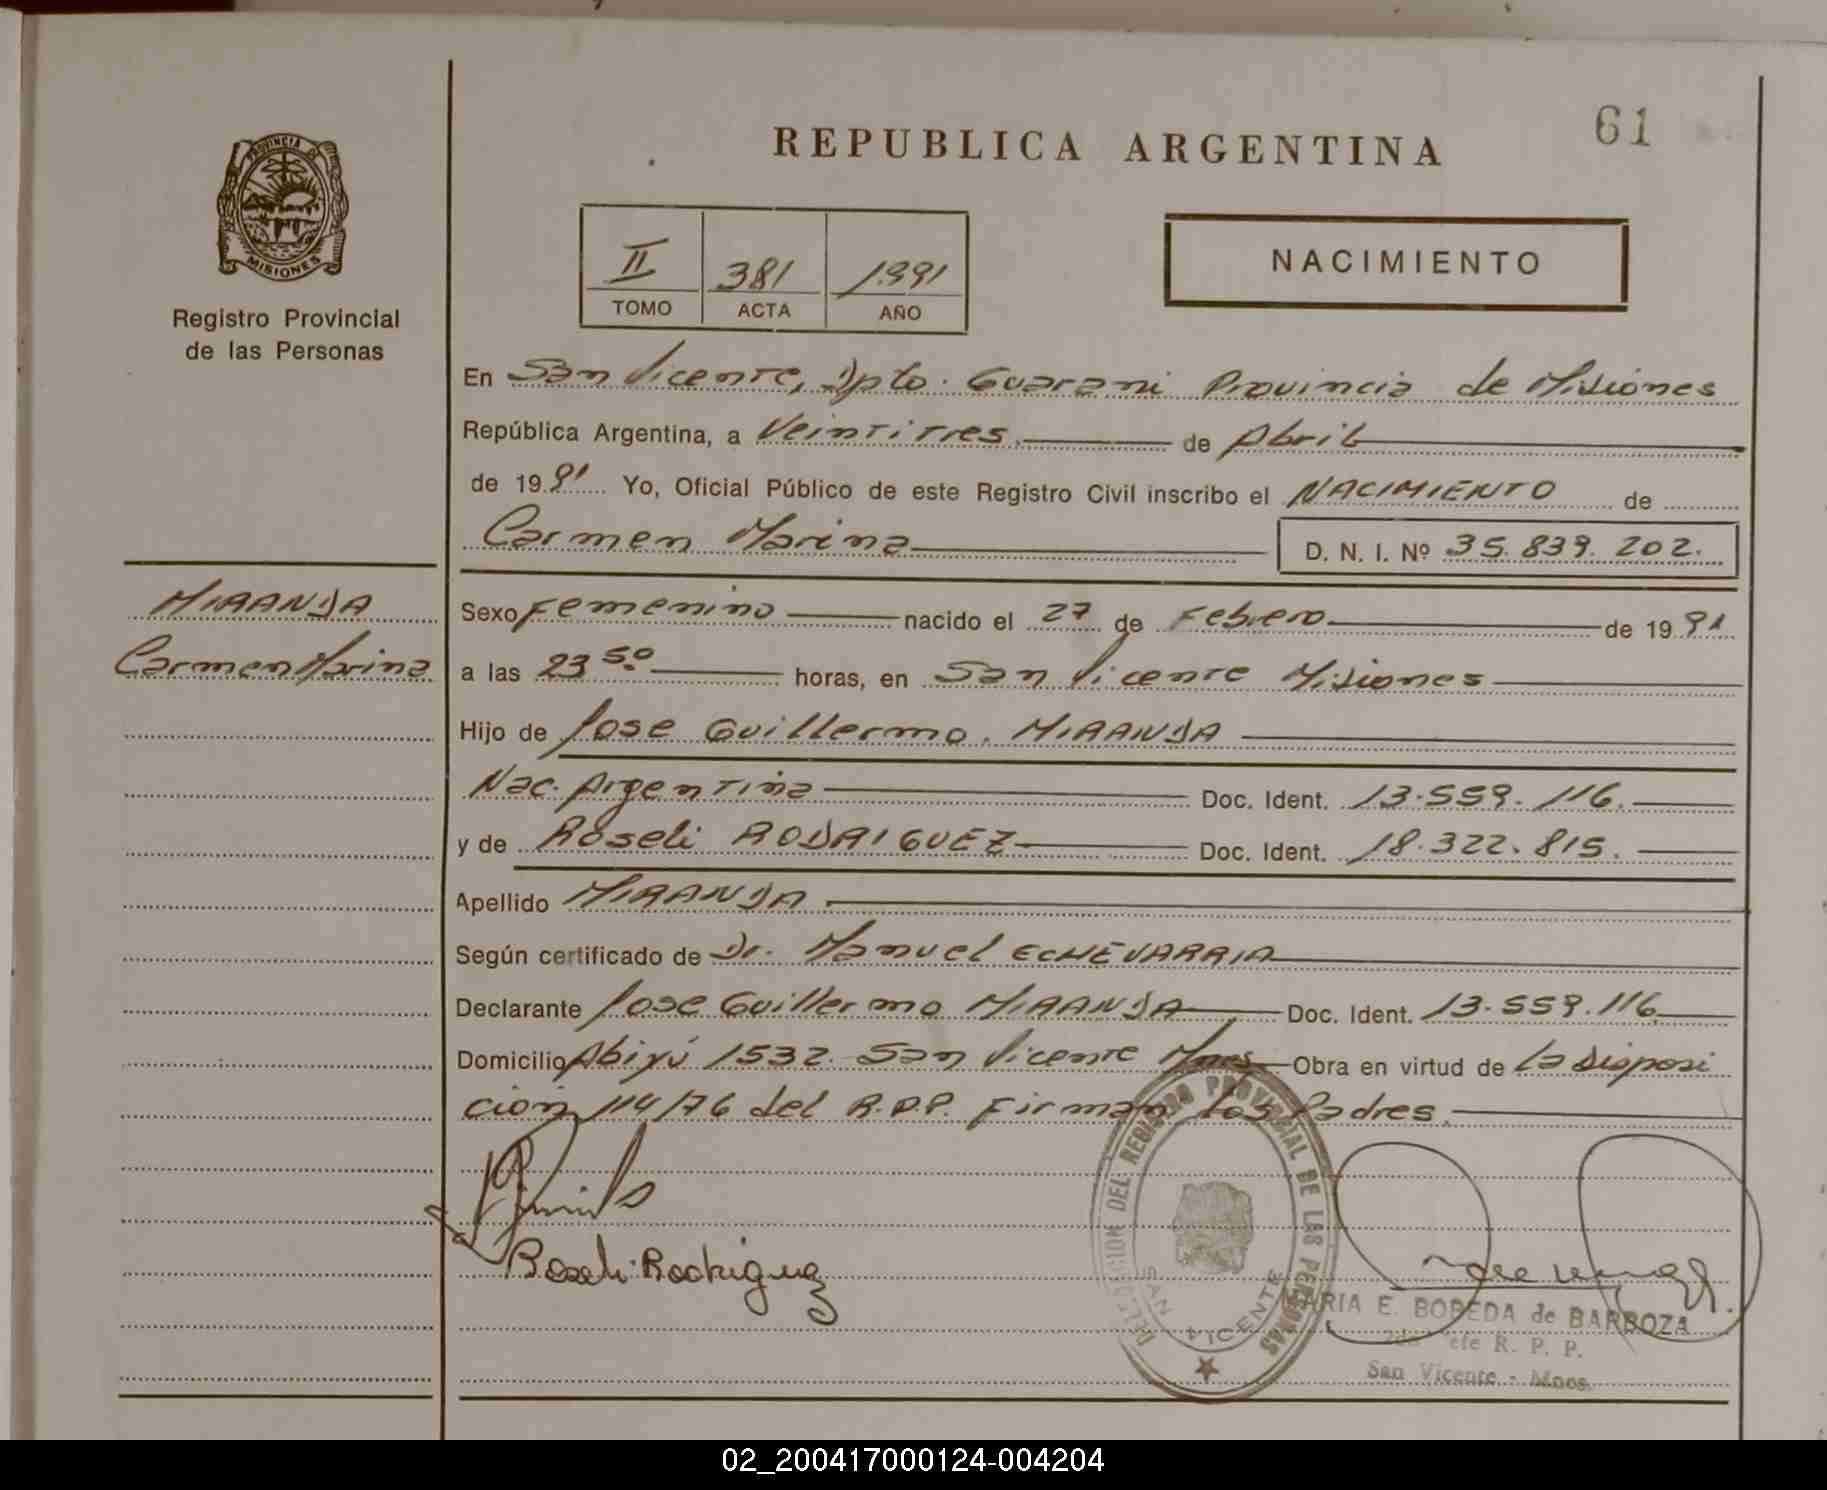 61
REPUBLICA ARGENTINA
PROVINCIA DE
MISIONES
Registro Provincial
de las Personas
II 381 1991
TOMO ACTA AÑO
NACIMIENTO
En San Vicente, Dpto. Guarani Provincia de Misiones
República Argentina, a Veintitres de Abril
de 1991 Yo, Oficial Público de este Registro Civil inscribo el NACIMIENTO de
Carmen Marina D. N. I. Nº 35.839.202.
MIRANDA
Carmen Marina
Sexo Femenino nacido el 27 de Febrero de 1991
a las 23 50 horas, en San Vicente Misiones
Hijo de Jose Guillermo. MIRANDA
Nac. Argentina Doc. Ident. 13.559.116.
y de Roseli RODRIGUEZ Doc. Ident. 18.322.815.
Apellido MIRANDA
Según certificado de Dr. Manuel ECHEVARRIA
Declarante Jose Guillermo MIRANDA Doc. Ident. 13.559.116
Domicilio Abiyú 1532. San Vicente Mnes Obra en virtud de la Disposi
cion 114/76 del R.P.P. Firman los Padres.
Roseli Rodriguez
DELEGACION DEL REGISTRO PROVINCIAL DE LAS PERSONAS
SAN VICENTE
MARIA E. BOBEDA de BARBOZA
2do Jefe R. P. P.
San Vicente - Mnes.
02_200417000124-004204